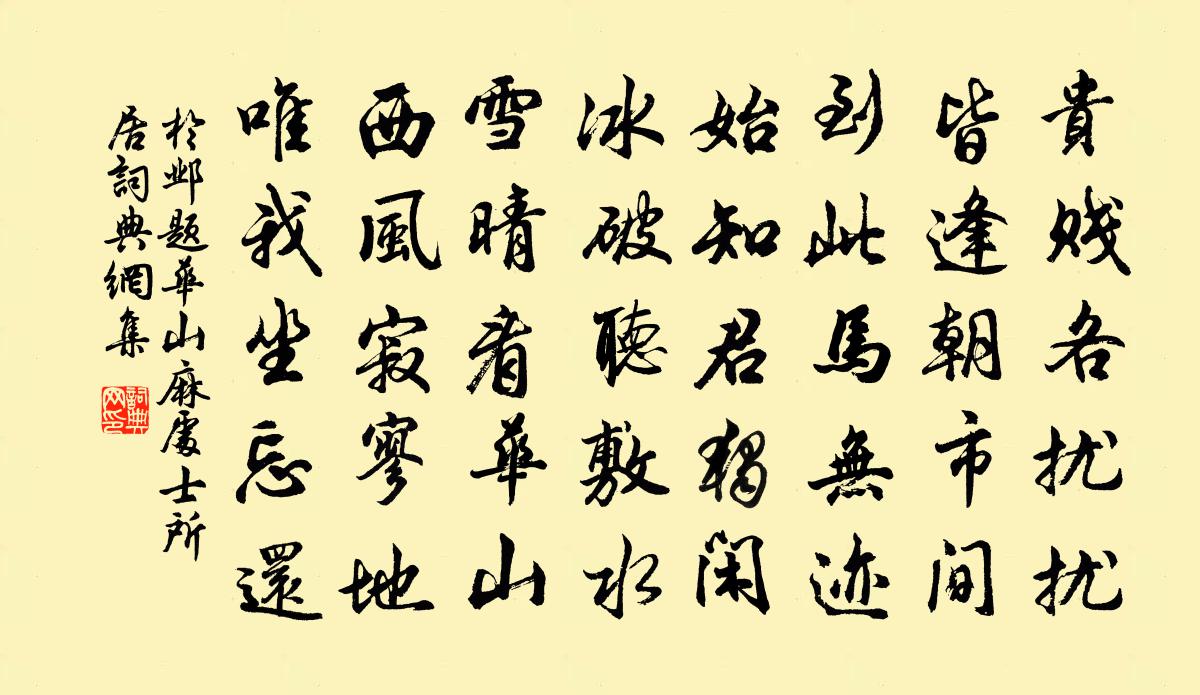 貴賤各扰扰
皆逢朝市间
到此馬無迹
始知君獨闲
冰破聽敷水
雪晴看華山
西風寂寥地
唯我坐忘還
於邺题華山麻處士所
居詞典網集
詞典
网印